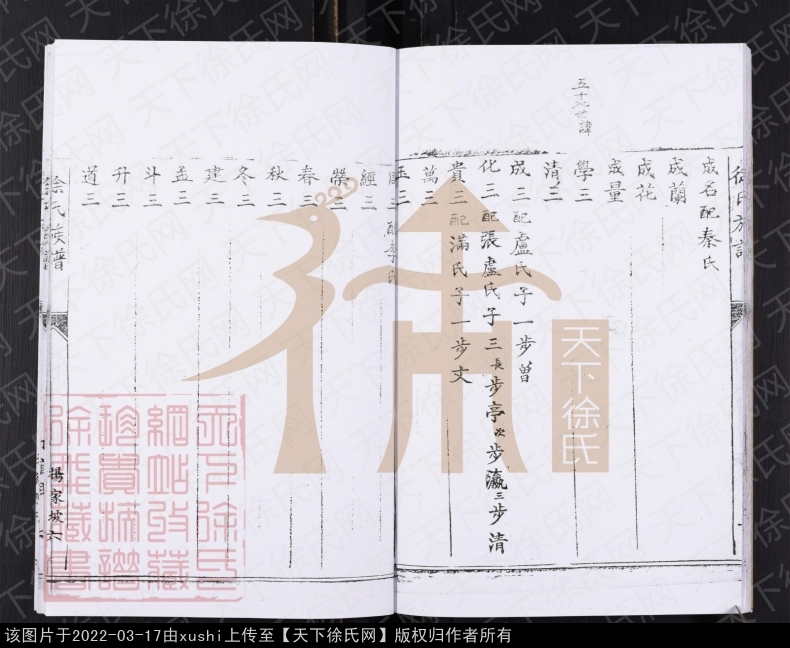 徐氏族譜
成名配秦氏
成蘭
成花
成量
五十九世諱
學三
清三
成三配盧氏子一步曾
化三配張盧氏子三長步亭次步瀛三步清
貴三配滿氏子一步文
萬三
玉三
配李氏
經三
榮三
春三
秋三
冬三
建三
孟三
斗三
升三
道三
徐氏族譜
楊家坡六
天下徐氏
该图片于2022-03-17由xushi上传至【天下徐氏网】版权归作者所有